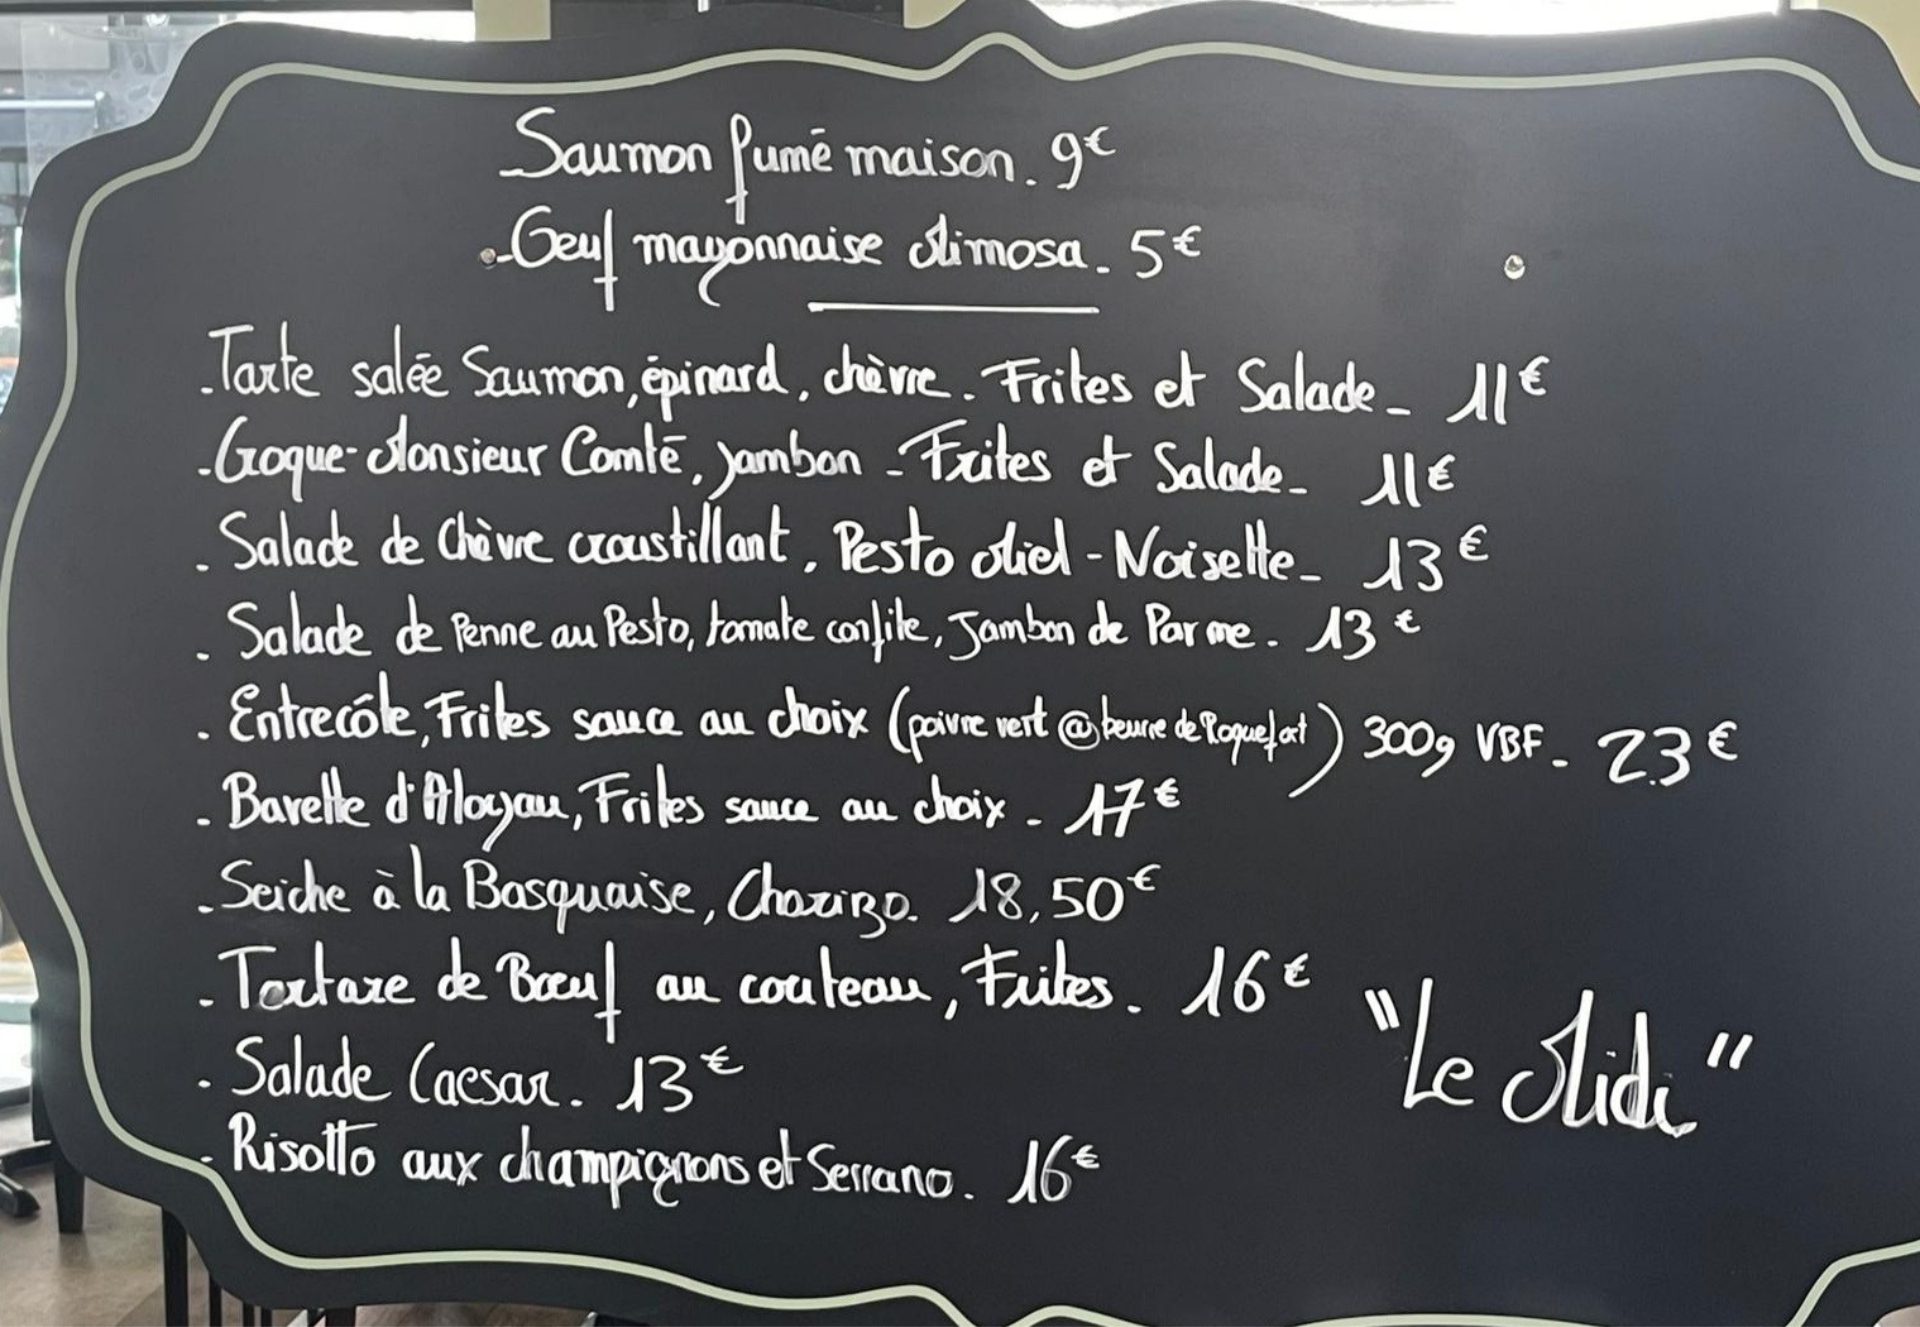 - Saumon fumé maison. 9€
- Oeuf mayonnaise Mimosa - 5€
- Tarte salée Saumon, épinard, chèvre - Frites et Salade - 11€
- Croque-Monsieur Comté, jambon - Frites et Salade - 11€
- Salade de Chèvre croustillant, Pesto Miel - Noisette - 13€
- Salade de Penne au Pesto, tomate confite, Jambon de Parme - 13€
- Entrecôte, Frites sauce au choix (poivre vert @ beurre de Roquefort) 300g VBF - 23€
- Bavette d'Aloyau, Frites sauce au choix - 17€
- Seiche à la Basquaise, Chorizo. 18,50€
- Tartare de Bœuf au couteau, Frites. 16€
- Salade Caesar. 13€
- Risotto aux champignons et Serrano. 16€
"Le Midi"